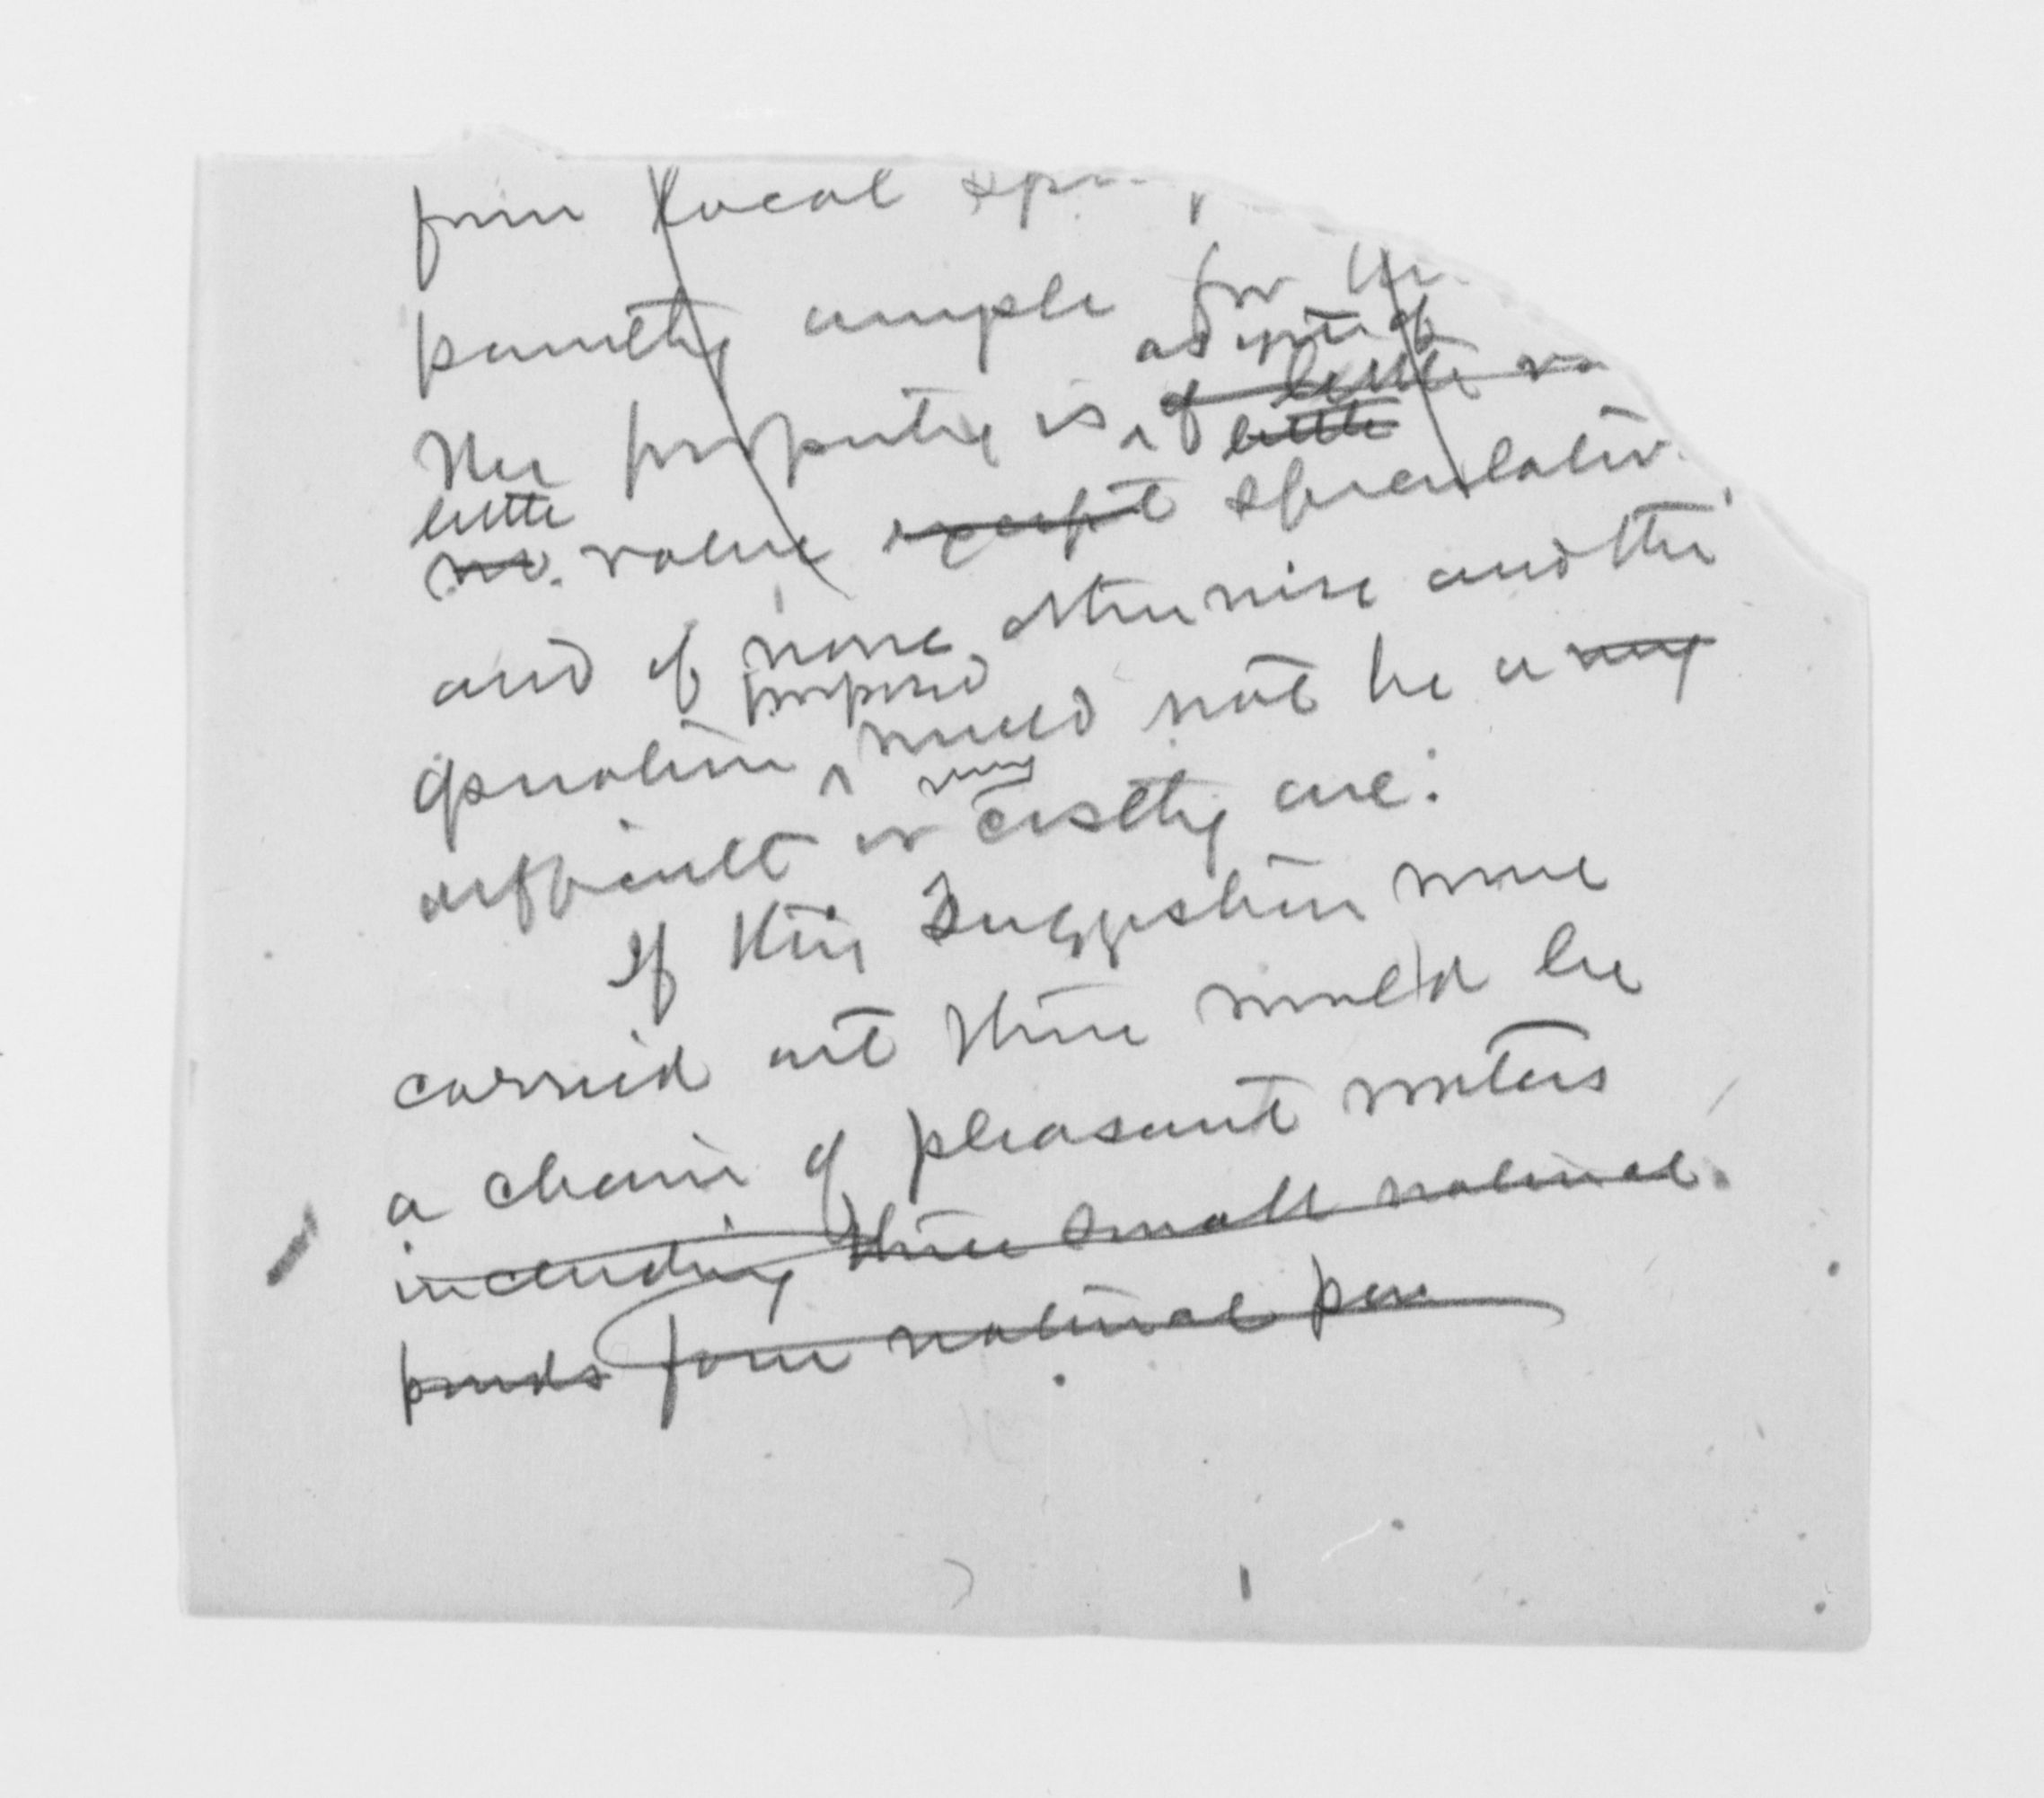 from local
ample for
as yet of
The property is of little
little
little
no. value except speculativ
and of none otherwise and the
proposed
operation would not be a very
very
difficult or costly one.
If this suggestion were
carried out there would be
a chain of pleasant waters
including three small natural
ponds four natural pon